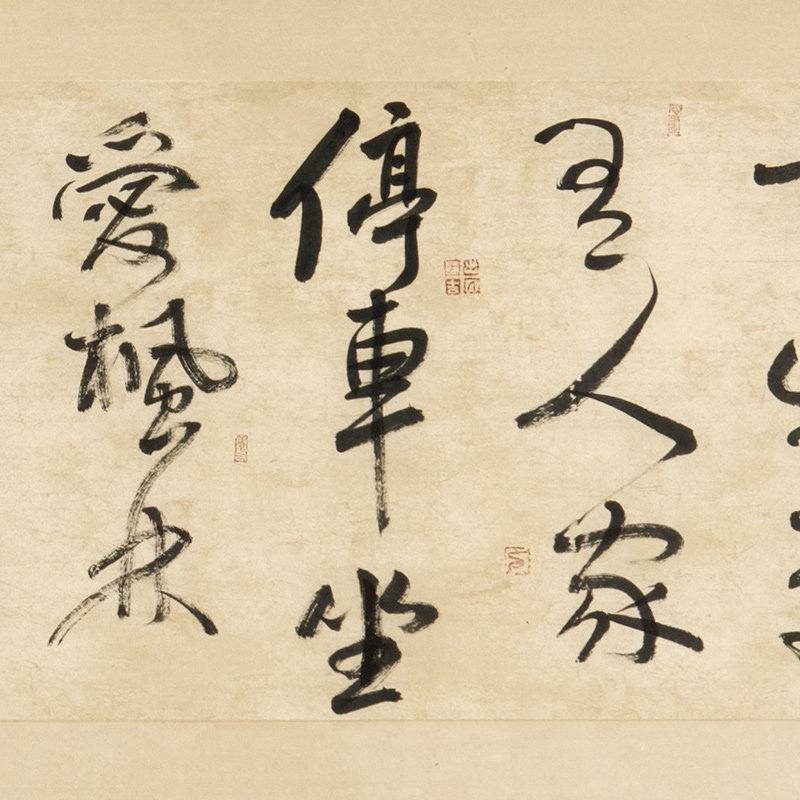 有人家
停車坐
愛楓林